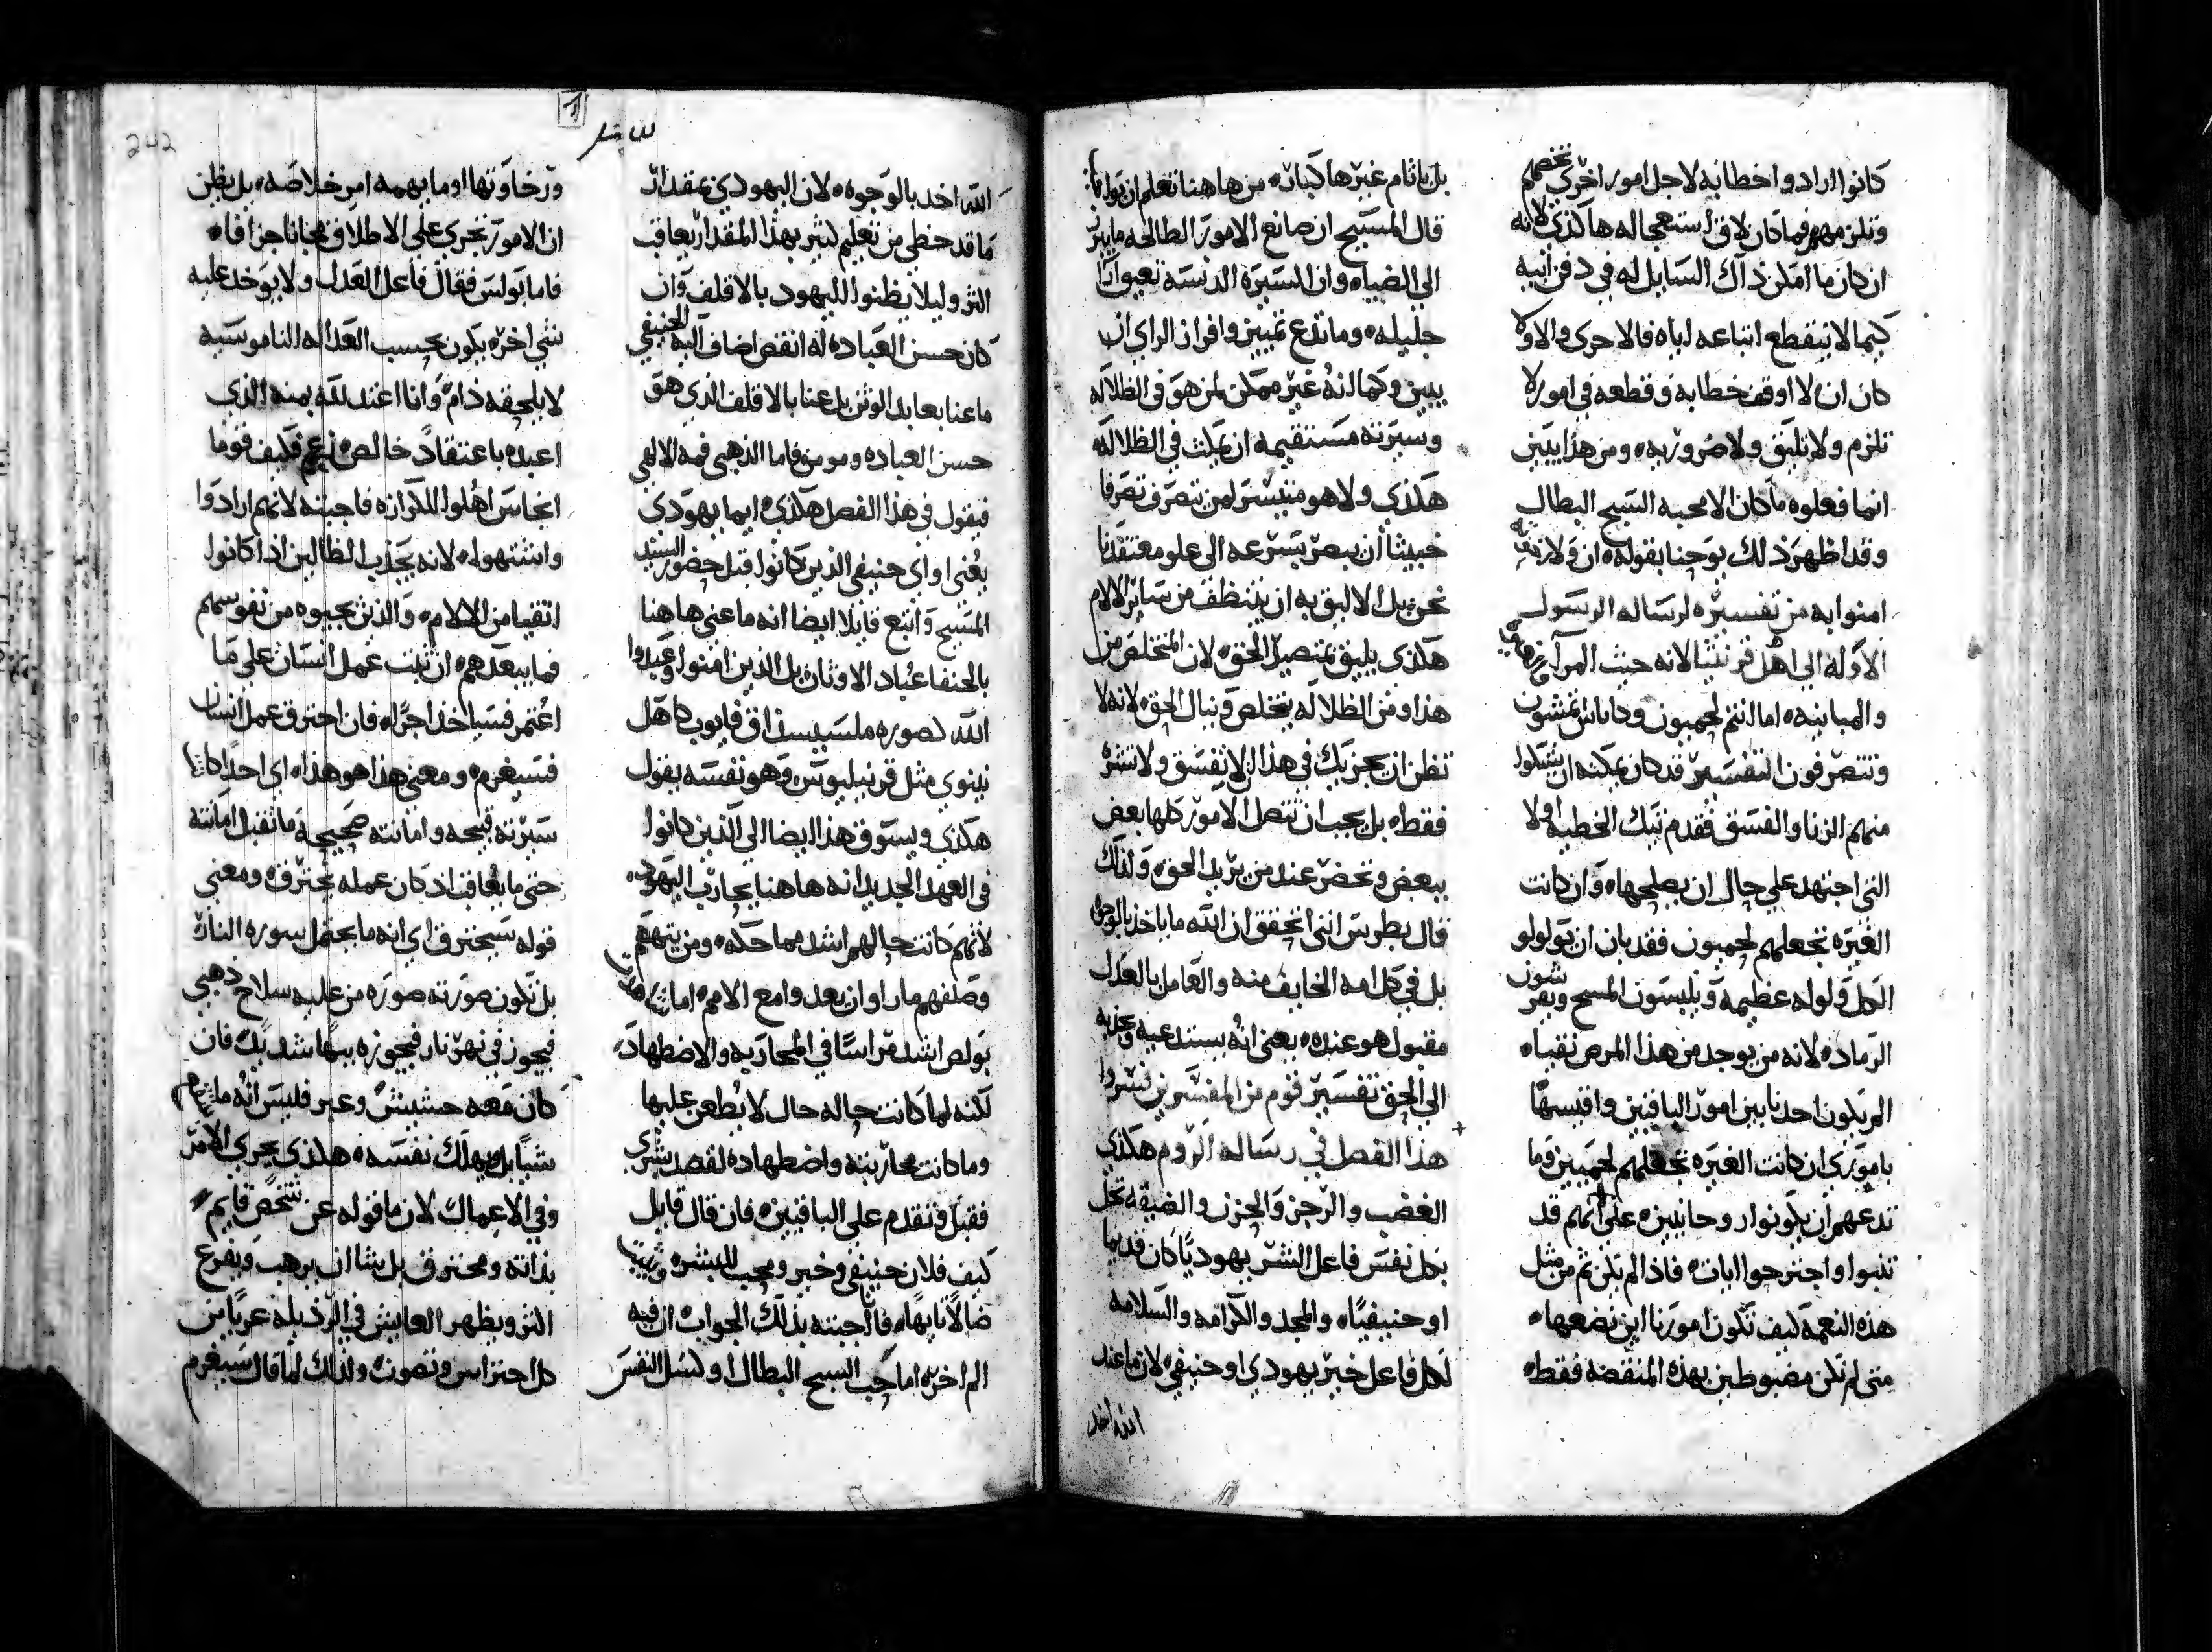 كانوا ارادوا خطابه لاجل امور اخرى تخصهم
وتلزمهم فما كان لاق استعجاله هاكذى لانه
ان كان ما امكن ذاك السايل له في دفن ابيه
كيما لا ينقطع اتباعه اياه فالاحرى والاولا
كان ان لا اوقف خطابه وقطعه في امور لا
تلزم ولا تليق ولا ضروريه ومن هذا يبين
انما فعلوه ما كان الا محبه السبح البطال
وقد اظهر ذلك يوحنا بقوله ان ولا
امنوا به من تفسيره لرساله الرسول
الاوله الي اهل قرنثيا لانه حيث المرآ
والمباينه اما انتم لحميون وكاناس تمشون
وتتصرفون التفسير قد كان يمكنه ان يشكوا
منهم الزنا والفسق فقدم تيك الخطيه اولا
التي اجتهد علي حال ان يصلحها وان كانت
الغيره تجعلهم لحميون فقد بان ان يولولو
الكل ولوله عظيمه ويلبسون المسح ويفرشون
الرماد لانه من يوجد من هذا المرض نقيا
المر يكون احدنا بين امور الباقيين واقيسها
يا مورى ان كانت الغيره تجعلهم لحميين وما
تدعهم ان يكونوا روحانيين على انهم قد
تنبوا واجترحوا ايات فاذا لم تكن ثم من مثل
هذه النعمه كيف تكون امورنا اين نضعها
متى لم نكن مضبوطين بهذه المنقصه فقط
بل باثام غيرها كبار من هاهنا تعلم ان
قال المسيح ان صانع الامور الطالحه ما يبرز
الي الضياء وان السيره الدنسه تعيق ارا
جليله وما تدع تمييز وافراز الراي ان
يبين وكما انه غير ممكن لمن هو في الظلاله
وسيرته مستقيمه ان يمكث في الظلاله
هكذى ولا هو متيسر لمن تتصرف تصرفا
خبيثا ان يبصر بسرعه الى علو معتقدنا
نحن بل الاليق به ان يتنظف من ساير الالام
هكذى يليق بمتصيل الحق لان المتخلص من
هذا ومن الظلاله يتخلص وينال الحق لانه لا
تظن ان يجزيك في هذا ان لا تفسق ولا تشره
فقط بل يجب ان تتصل الامور كلها بعض
ببعض وتحضر عند من يريد الحق ولذلك
قال بطرس انني اتحقق ان الله ما ياخذ بالوجوه
بل في كل امه الخايف منه والعامل بالعدل
مقبول هو عنده يعني انه يستدعيه ويجذبه
الي الحق تفسير قوم من المفسرين فسروا
هذا الفصل في رساله الروم هكذى
الغضب والرجز والحزن والضيقه تحل
بكل نفس فاعل الشر يهوديا كان قديما
او حنيفيا والمجد والكرامه والسلامه
لكل فاعل خير يهودي او حنيفي لان ما عند
الله اخد
الله اخد بالوجوه لان اليهودي بمقدار
ما قد حظي من تعليم كثير بهذا المقدار يعاقب
اكثر وليلا يظنوا لليهود بالاقلف وان
كان حسن العباده له انقص اضاف اليه الحنيفي
ما عنا بعابد الوثن بل عنا بالاقلف الذي هو
حسن العباده ومومن فاما الذهبي فمه الالهي
فيقول في هذا الفصل هكذى ايما يهودى
يعني او اي حنيفي الذين كانوا قبل حضور السيد
المسيح واتبع قايلا ايضا انه ما عني هاهنا
بالحنفا عباد الاوثان بل الذين امنوا وعبدوا
الله كصوره ملسيسذاق وايوب كاهل
نينوى مثل قرنيليوس وهو نفسه يقول
هكذى ويسوق هذا ايضا الي الذين كانوا
في العهد الجديد انه هاهنا يحارب اليهود
لانهم كانت حالهم اشد مماحكه ومن يتهمهم
وصلفهم ما راوا ان يعدوا مع الامم اما
بولص اشد مراسا في المحاربه والاضطهاد
لكنه لما كانت حاله حال لا يطعن عليها
وما كانت محاربته واضطهاده لقصد بشري
فقبل وتقدم على الباقيين فان قال قايل
كيف فلان حنيفي وخير ومحب للبشر
ضالا تايها فاجبته بذلك الجواب ان فيه
الم اخر اما حب السبح البطال او كسل النفس
ورخاوتها او ما يهمه امر خلاصه بل يظن
ان الامور تجري علي الاطلاق مجانا جزافا
فاما بولس فقال فاعل العدل ولا يوخد عليه
شي اخر يكون بحسب العداله الناموسيه
لا يلحقه ذام وانا اعند لله بمنه الذي
اعبده باعتقاد خالص زعم فكيف قوما
انجاس اهلوا للكرازه فاجبته لانهم ارادوا
واشتهوا لانه يجذب الظالين اذا كانوا
انقيا من الالام والذين يجيوه من نفوسهم
فما يبعدهم ان ثبت عمل انسان علي ما
اعتمر فسياخذ اجراه فان احترق عمل انسان
فسيغرم ومعني هذا هو هذا اي احدا كانت
سيرته قبيحه وامانته صحيحة ما تقبل امانته
حتي ما يعاقب اذ كان عمله يحترق ومعني
قوله سيحترق اي انه ما يحتمل سوره النار
بل تكون صورته صوره من عليه سلاح ذهبي
فيجوز في نهر نار فيجوزه بها شديدك فان
كان معه حشيش وغير فليس انه ما
شيا بل ويهلك نفسه هكذى يجري الامر
وفي الاعمال لان ما قوله عن شخص قايم
بذاته ومحترق بل يشا ان يرهب ويفزع
اكثر ويظهر العايش في الرذيله عريا من
كل احتراس وتصون ولذلك لما قال سيغرم
242